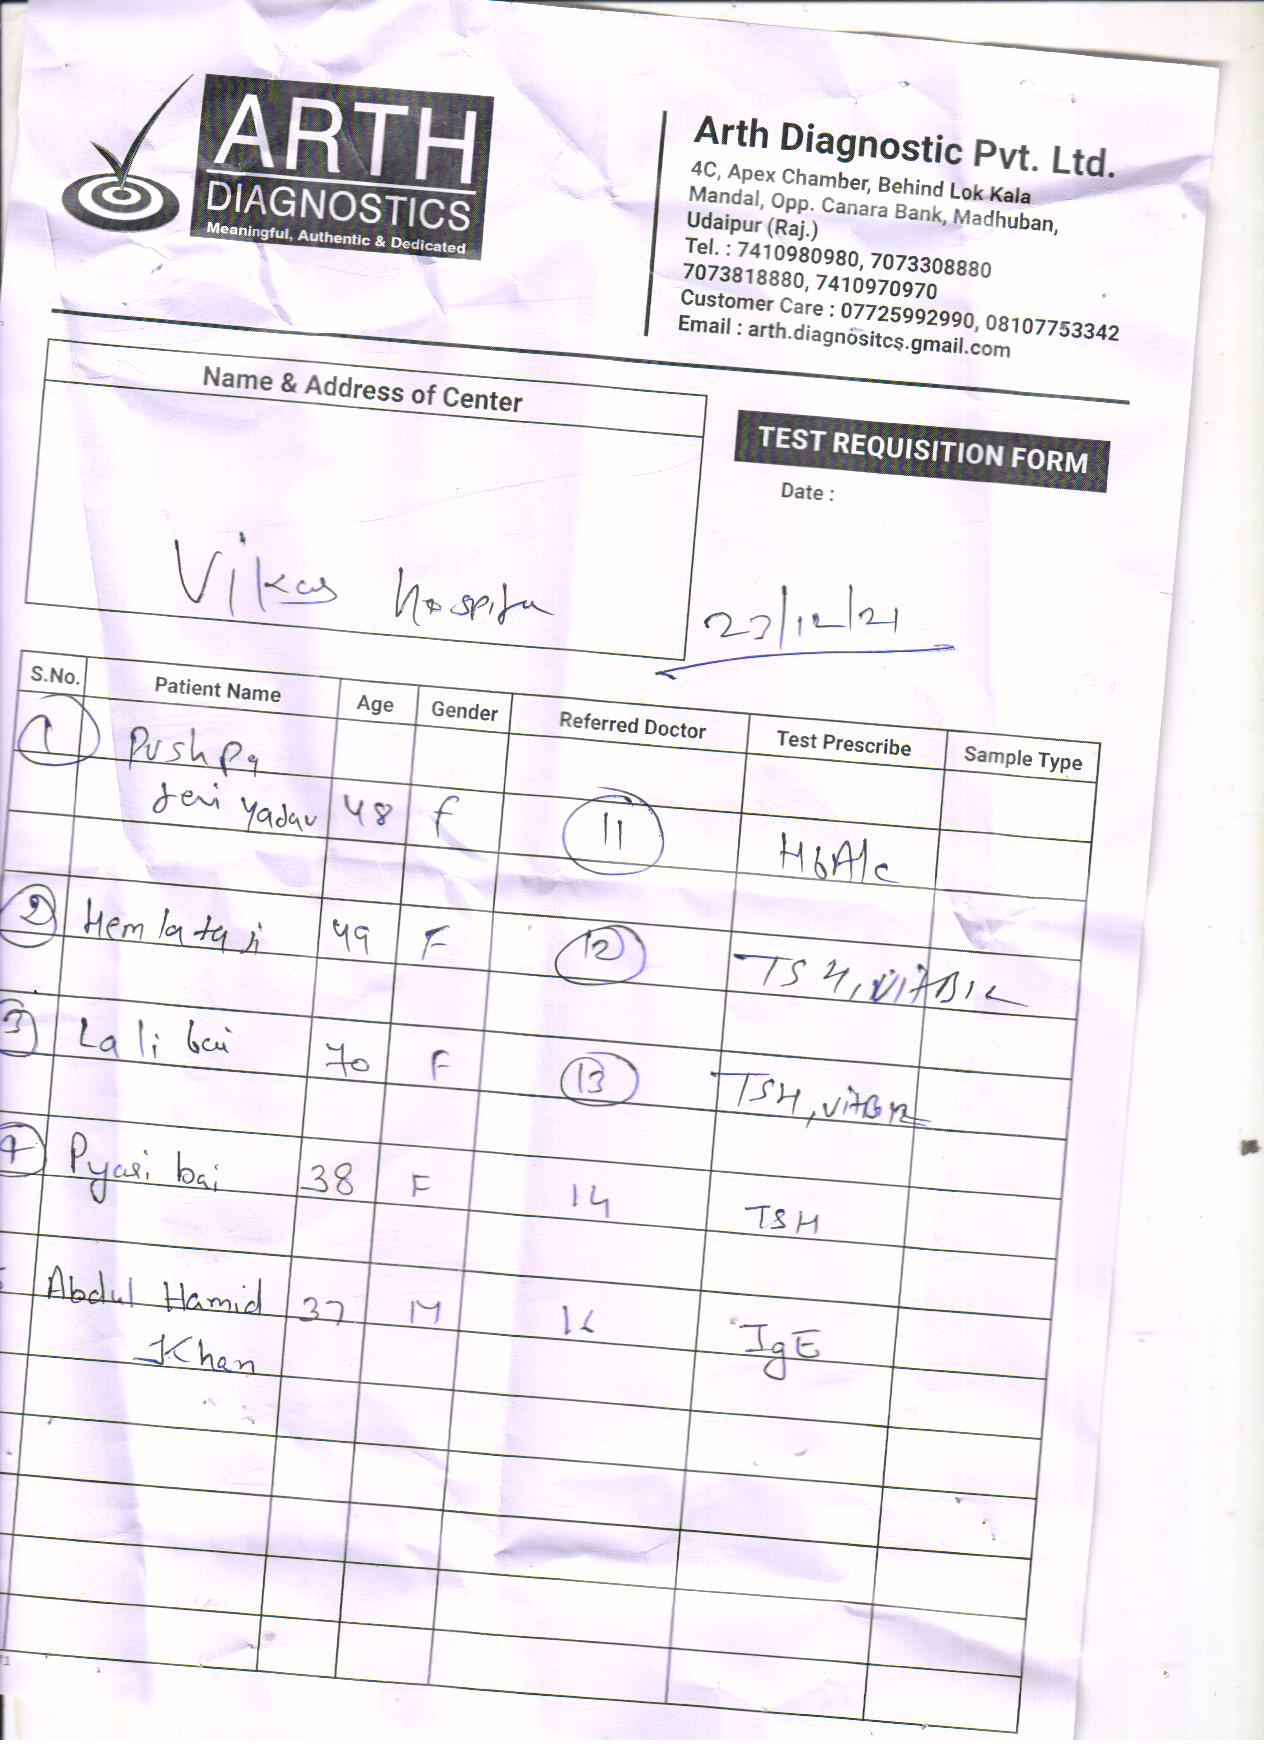 ARTH
DIAGNOSTICS
Meaningful, Authentic & Dedicated
Arth Diagnostic Pvt. Ltd.
4C, Apex Chamber, Behind Lok Kala
Mandal, Opp. Canara Bank, Madhuban,
Udaipur (Raj.)
Tel. : 7410980980, 7073308880
7073818880, 7410970970
Customer Care : 07725992990, 08107753342
Email : arth.diagnositcs.gmail.com
Name & Address of Center
Vikas Hospital
TEST REQUISITION FORM
Date :
23/12/21
S.No. Patient Name Age Gender Referred Doctor Test Prescribe Sample Type
1 Pushpa
Devi Yadav 48 F 11 HbA1c
2 Hemlata ji 49 F 12 TSH, VitB12
3 Lali bai 70 F 13 TSH, VitB12
4 Pyari bai 38 F 14 TSH
Abdul Hamid 37 M IgE
Khan